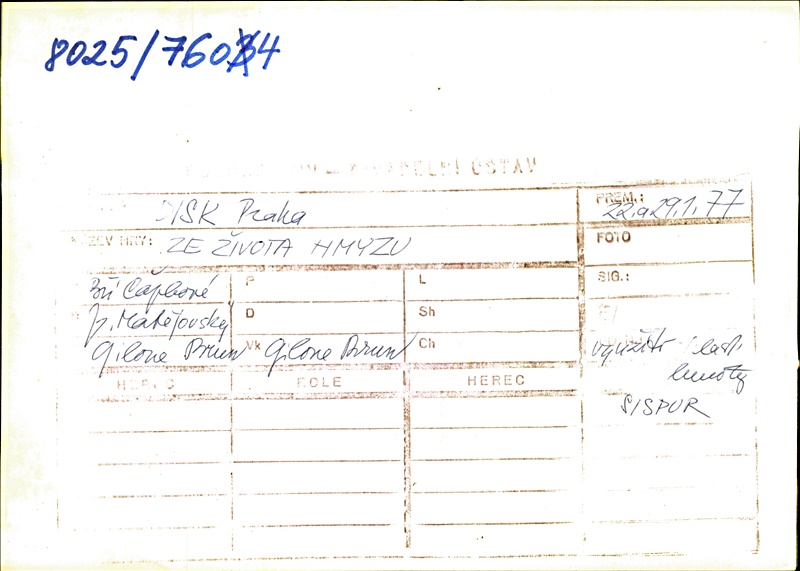 8025/76034
DELNÍ ÚSTAV
DISK Praha
PREM.: 22. a 29.1.77
NÁZEV HRY: ZE ŽIVOTA HMYZU
FOTO
Bří Čapkové P L SIG.:
J. Matějovský D Sh
Gilone Brun Vk Gilone Brun Ch využití
hmoty
HEREC ROLE HEREC
SISPUR